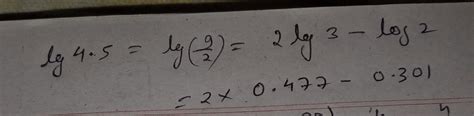 lg 4.5 = lg(9/2) = 2 lg 3 - log 2
= 2 × 0.477 - 0.301